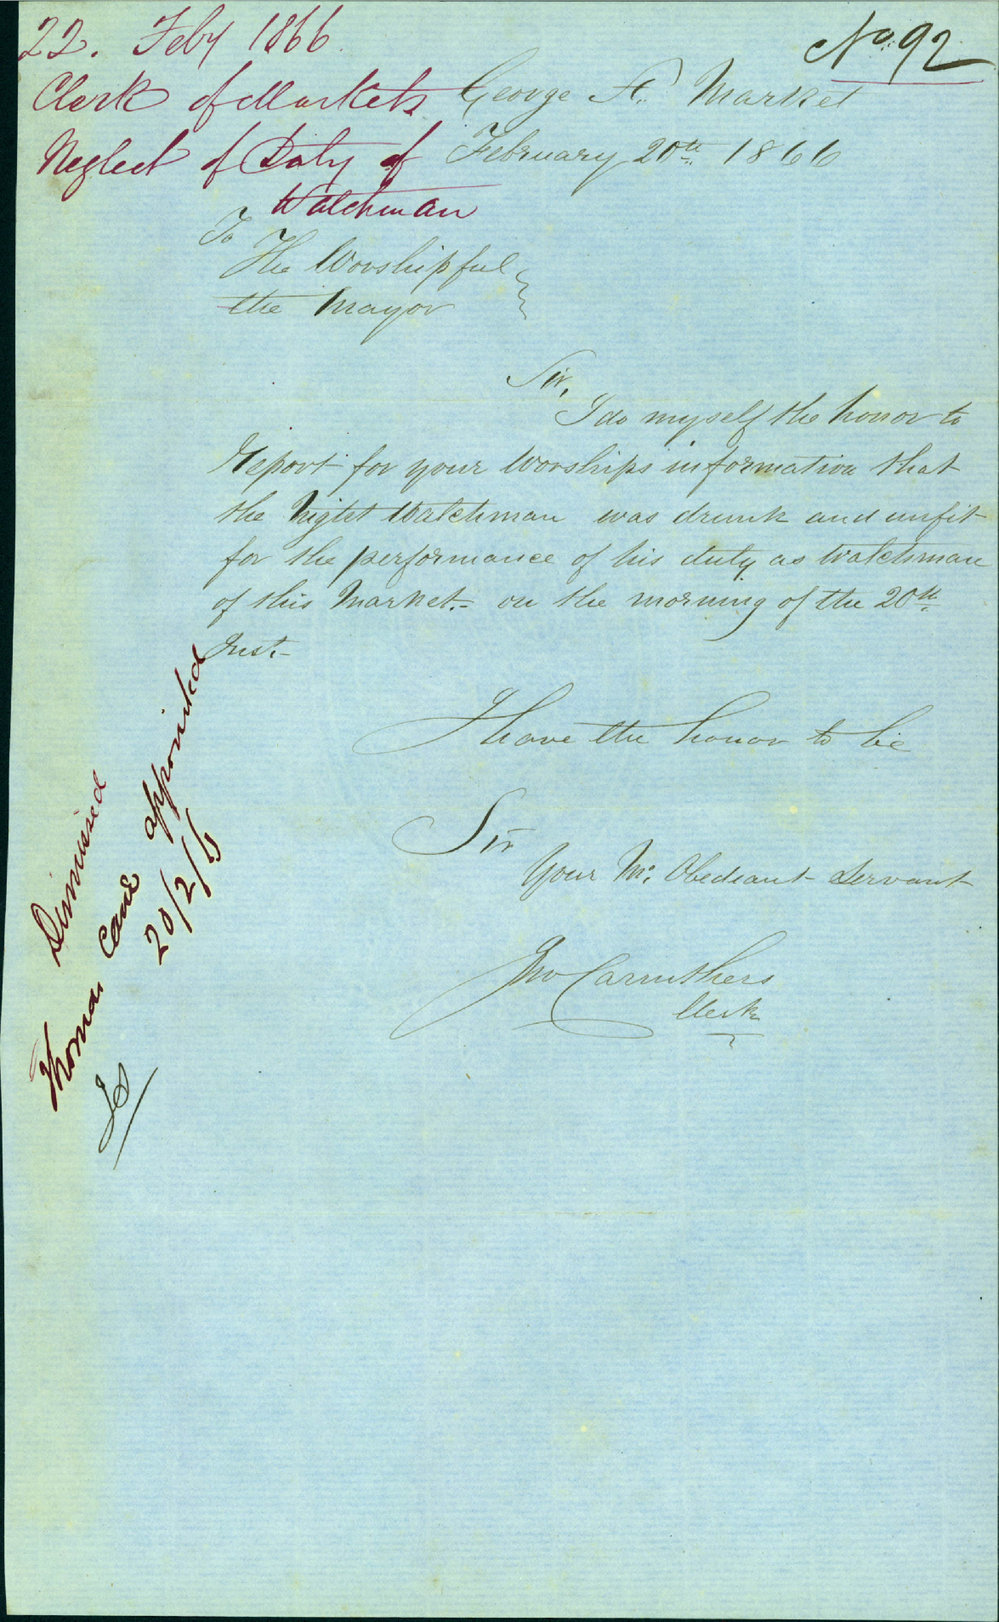 22. Feby 1866
No 92
Clerk of Markets
Neglect of Duty of
Watchman
George St. Market
February 20th 1866
To
The Worshipful
the Mayor
Sir,
I do myself the honor to
Report for your Worships information that
the Night Watchman was drunk and unfit
for the performance of his duty as Watchman
of this Market.- on the morning of the 20th
Inst.-
I have the honor to be
Sir
Your Mt. Obedeant Servant
Jno Carruthers
Clerk
Dismissed
Thomas Cane appointed
20/2/6